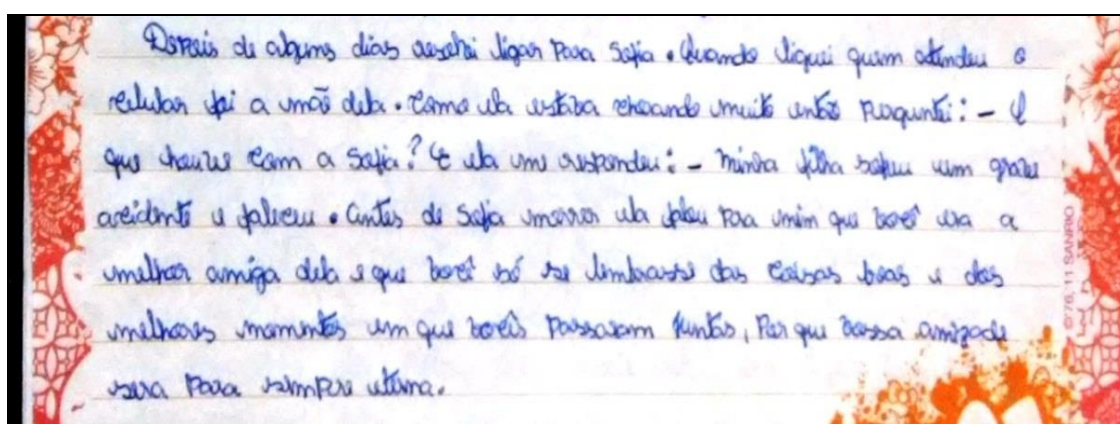 Depois de alguns dias resolvi ligar Para Sofia. Quando liguei quem atendeu o
celular foi a mãe dela. Como ela estava chorando muito então Perguntei: - O
que houve com a Sofia? E ela me respondeu: - minha filha sofreu um grave
acidente e faleceu. Antes de Sofia morrer ela falou Para mim que você era a
melhor amiga dela e que você só se lembrasse das coisas boas e dos
melhores momentos em que vocês Passaram juntas, Por que vossa amizade
sera Para sempre eterna.
11 SANRIO